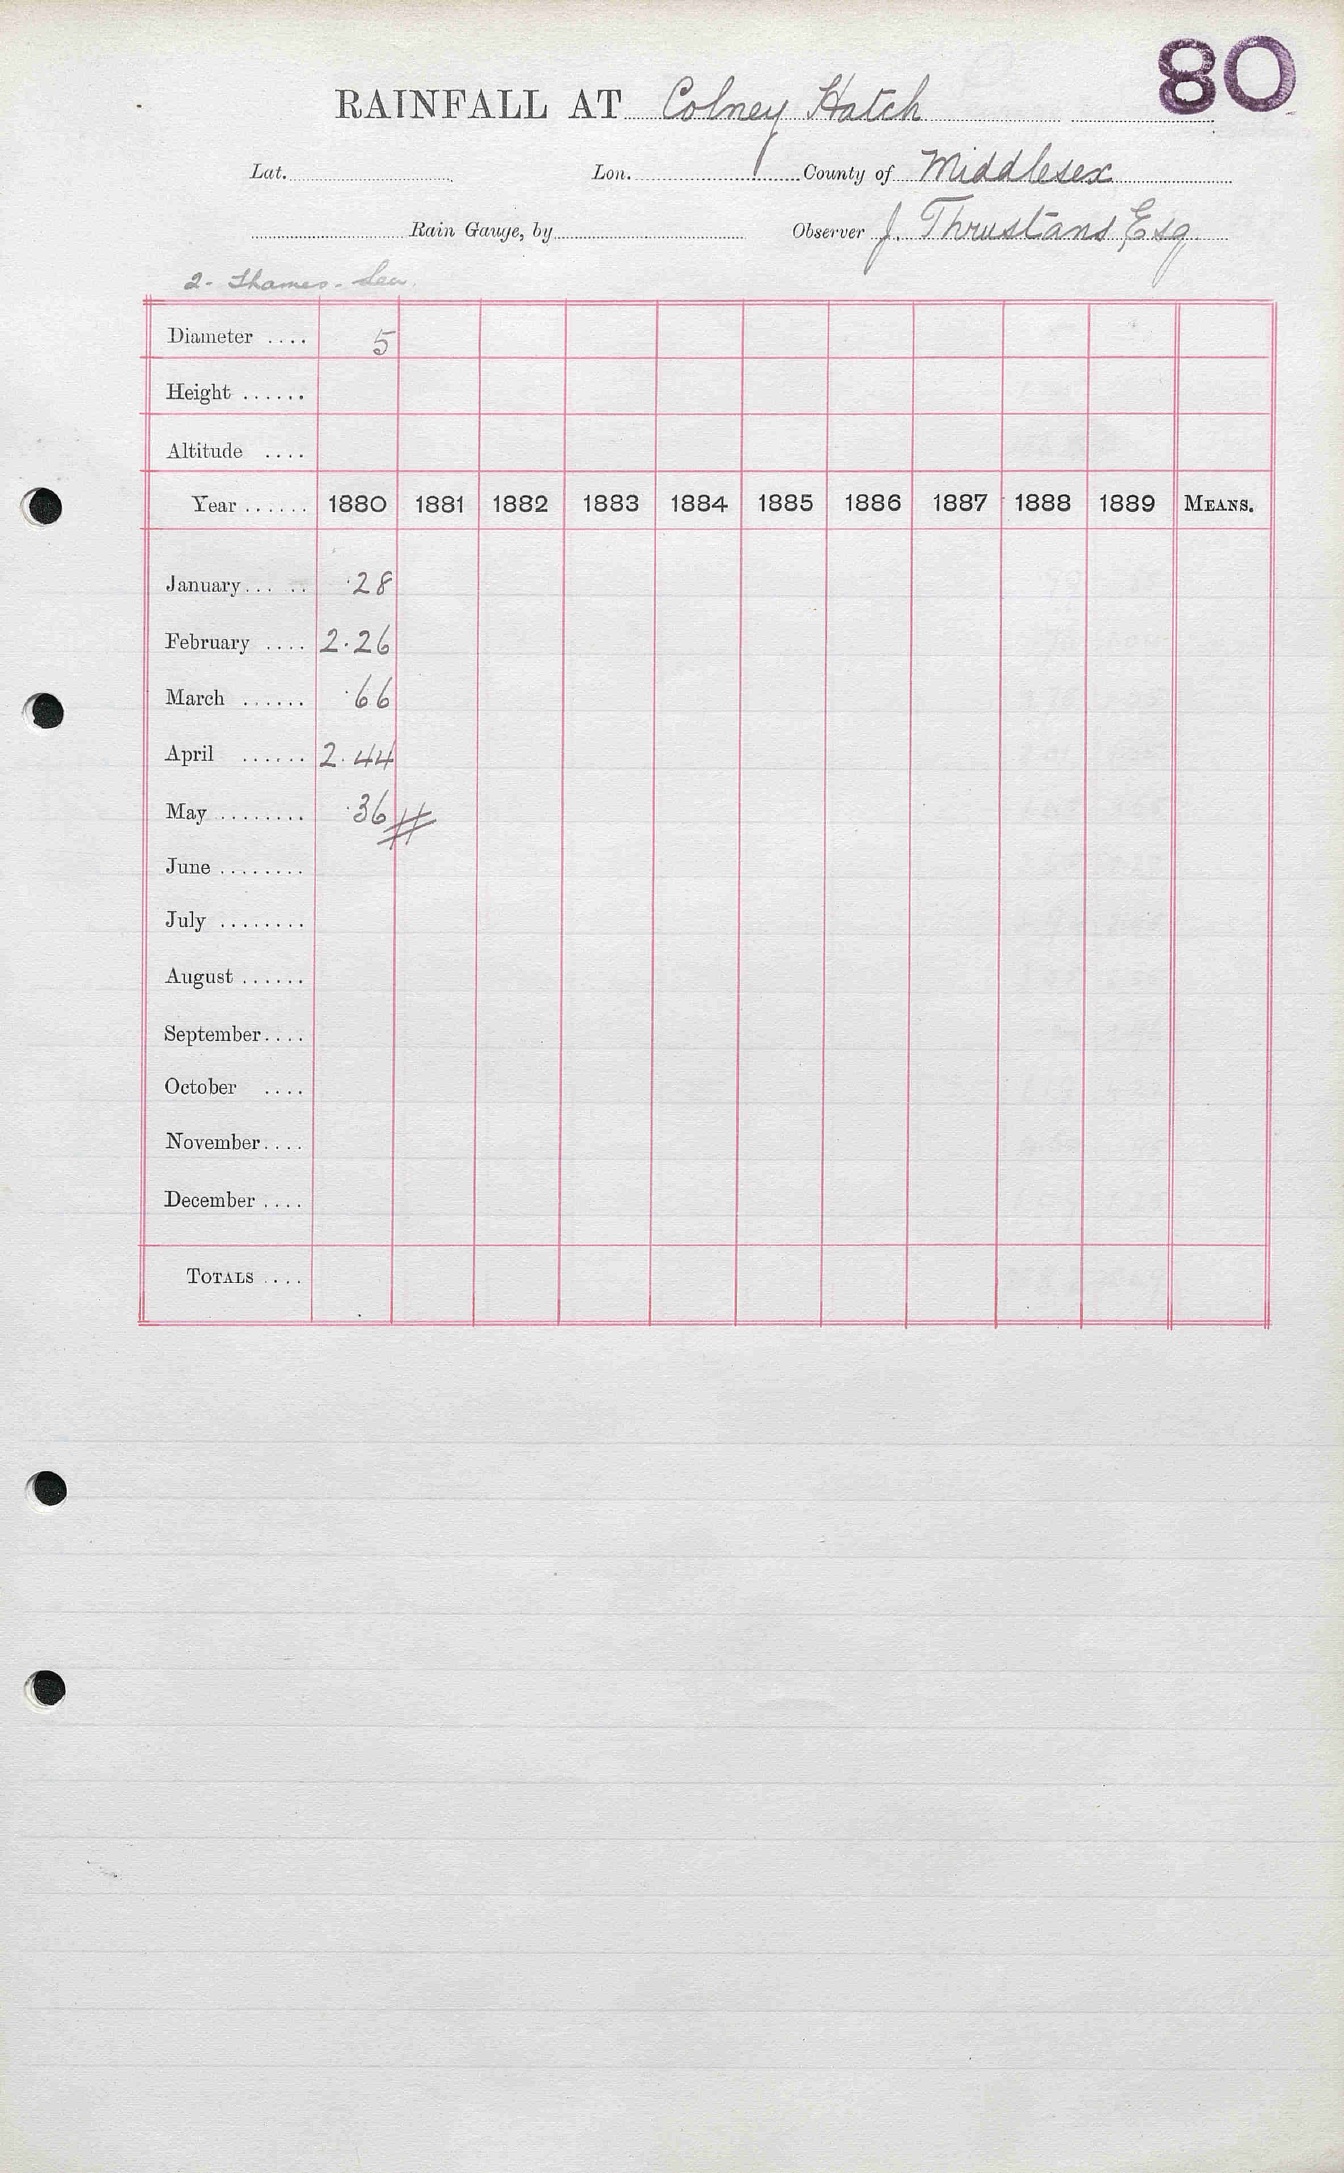 80
RAINFALL AT Colney Hatch
Lat. Lon. County of Middlesex
Rain Gauge, by Observer J. Thrustans Esq
2 - Thames - Lea.
Diameter .... 5
Height ......
Altitude ....
Year ...... 1880 1881 1882 1883 1884 1885 1886 1887 1888 1889 MEANS.
January... .. .28
February .... 2.26
March ...... .66
April ...... 2.44
May ........ .36 #
June ........
July ........
August ......
September....
October ....
November....
December ....
TOTALS ....